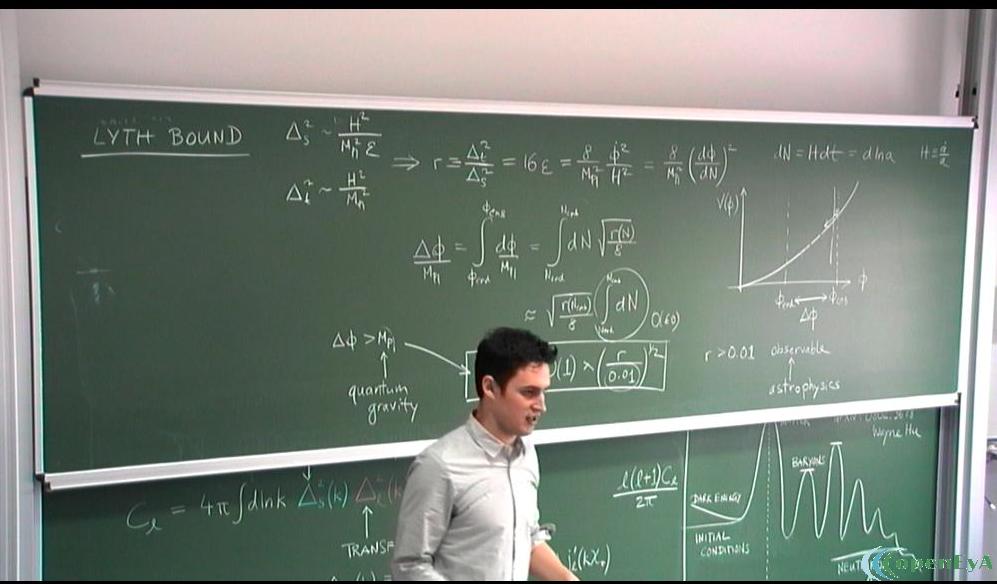 LYTH BOUND
Δ_s^2 ~ H^2 / M_pl^2 ε
Δ_t^2 ~ H^2 / M_pl^2
⇒ r ≡ Δ_t^2 / Δ_s^2 = 16ε = 8/M_pl^2 φ̇^2/H^2 = 8/M_pl^2 (dφ/dN)^2
dN = Hdt = dlna
H ≡ ȧ/a
Δφ/M_pl = ∫_{φ_end}^{φ_cmb} dφ/M_pl = ∫_{N_end}^{N_cmb} dN √(r(N)/8)
≈ √(r(N_cmb)/8) ∫_{N_end}^{N_cmb} dN
O(60)
V(φ)
φ
φ_end ↔ φ_cmb
Δφ
Δφ > M_pl
quantum
gravity
(1) × (r/0.01)^{1/2}
r > 0.01 observable
astrophysics
C_ℓ = 4π ∫dlnk Δ_s^2(k) Δ_ℓ(k
TRANSF
ℓ(ℓ+1)C_ℓ / 2π
Wayne Hu
DARK ENERGY
INITIAL
CONDITIONS
BARYONS
NEUT
openEyA